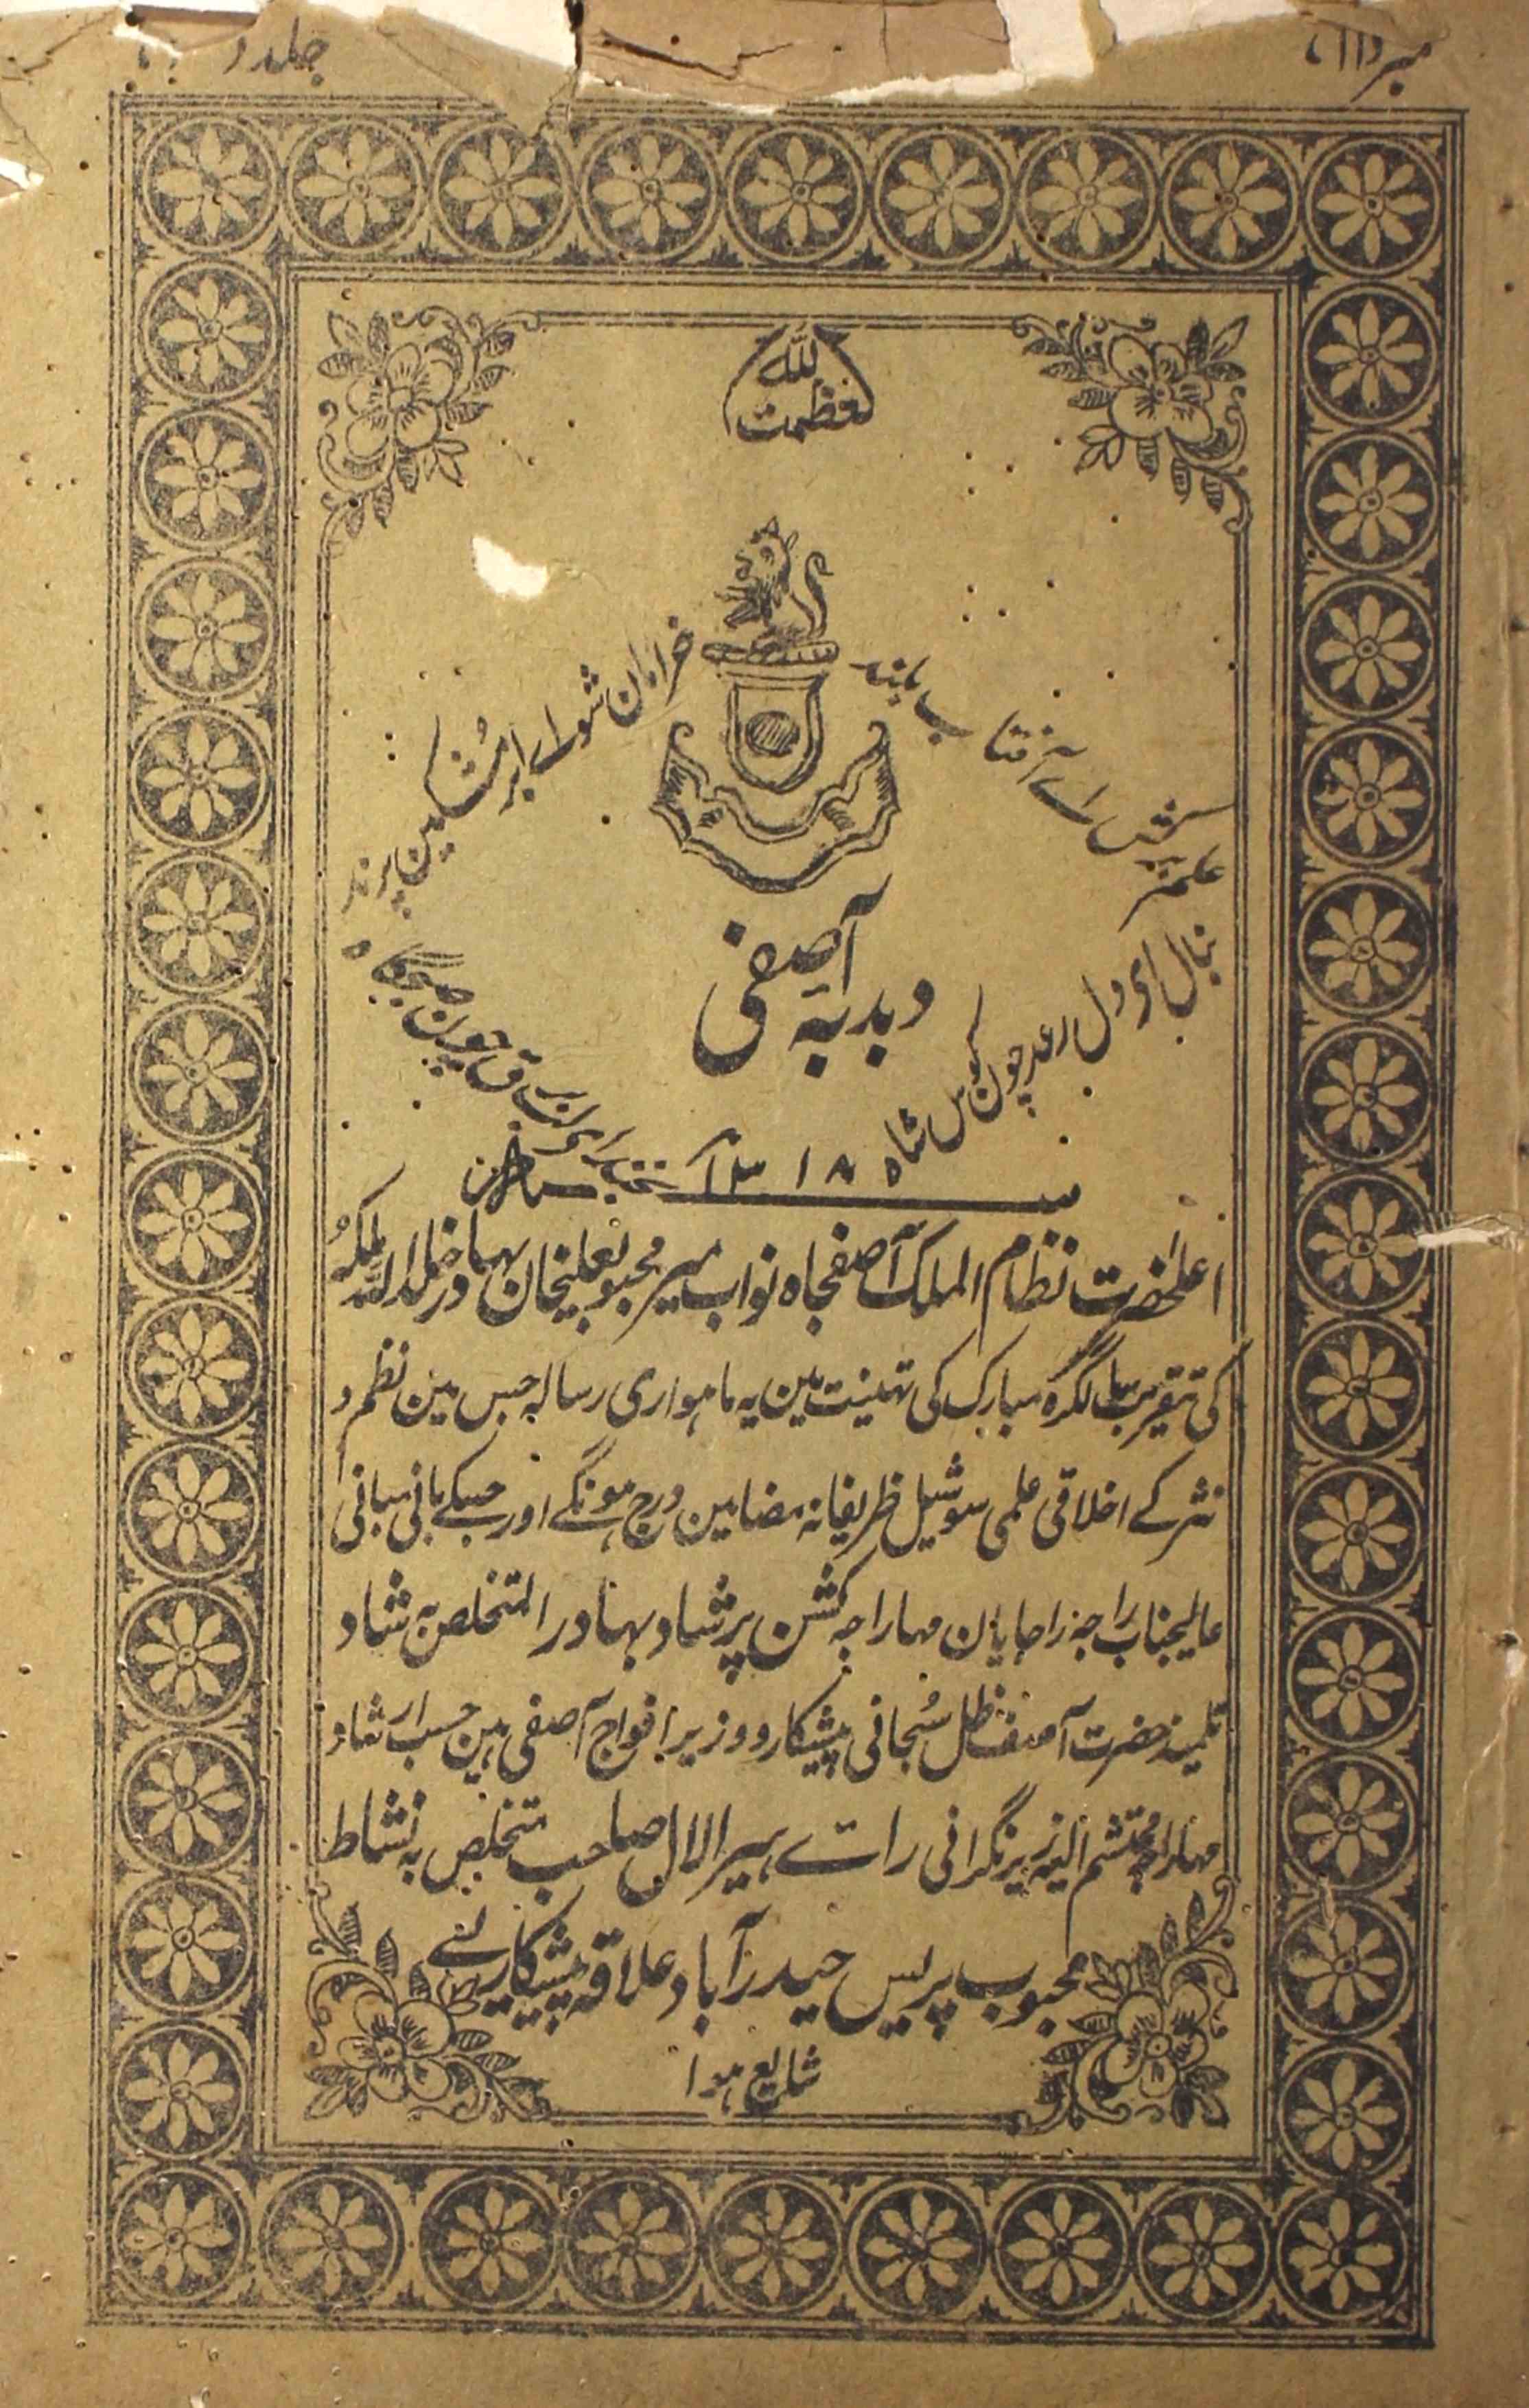 نمبر (۱۱)
جلد
العظمت للہ
خرامان شو اے ابر مشکین پرند
اے آفتاب بلند
بنال ای دل رعد چون کوس شاہ
بخند ای لب برق چون صبحگاہ
دبدبۂ آصفی
سنہ ۱۳۱۸
اعلیٰحضرت نظام الملک آصفجاہ نواب میر محبوبعلیخان بہادر خلد اللہ ملکہُ
کی تقریب سالگرہ مبارک کی تہنیت مین یہ ماہواری رسالہ جس مین نظم و
نثر کے اخلاقی علمی سوشیل ظریفانہ مضامین درج ہونگے اور جسکے بانی مبانی
عالیجناب راجہ راجایان مہاراجہ کشن پرشاد بہادر المتخلص بہ شاد
تلمیذ حضرت آصف ظل سُبحانی پیشکار و وزیر افواج آصفی ہین حسب ارشاد
مہاراجہ محتشم الیہ زیر نگرانی رائے ہیرا لال صاحب متخلص بہ نشاط
محبوب پریس حیدرآباد علاقہ پیشکاری سے
شایع ہوا